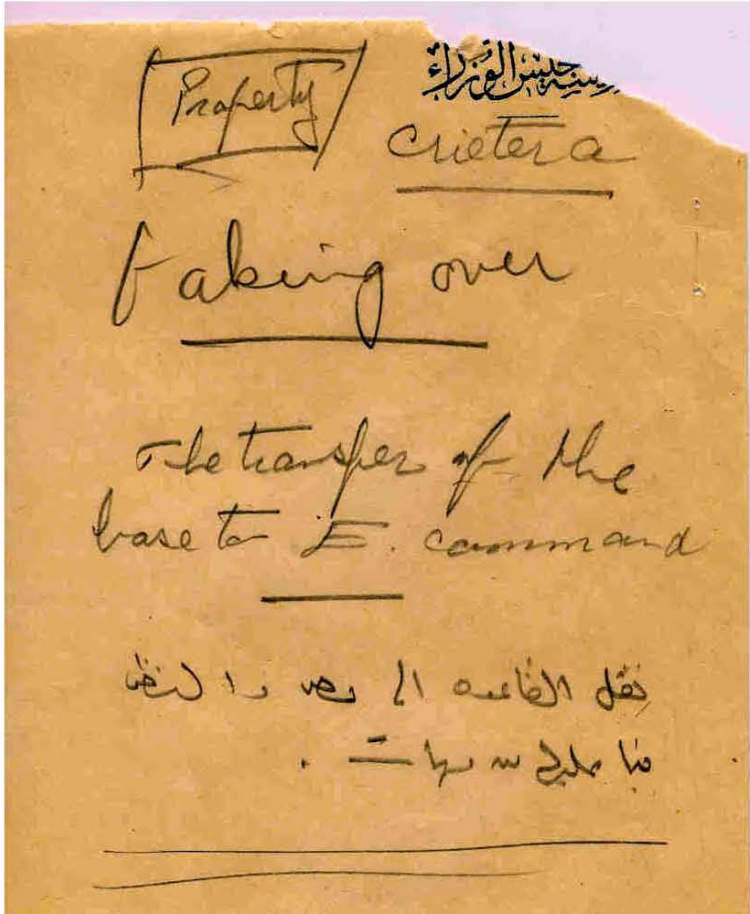 Property
مجلس الوزراء
crietera
taking over
The transfer of the
base to E. command
نقل القاعده الى مصر